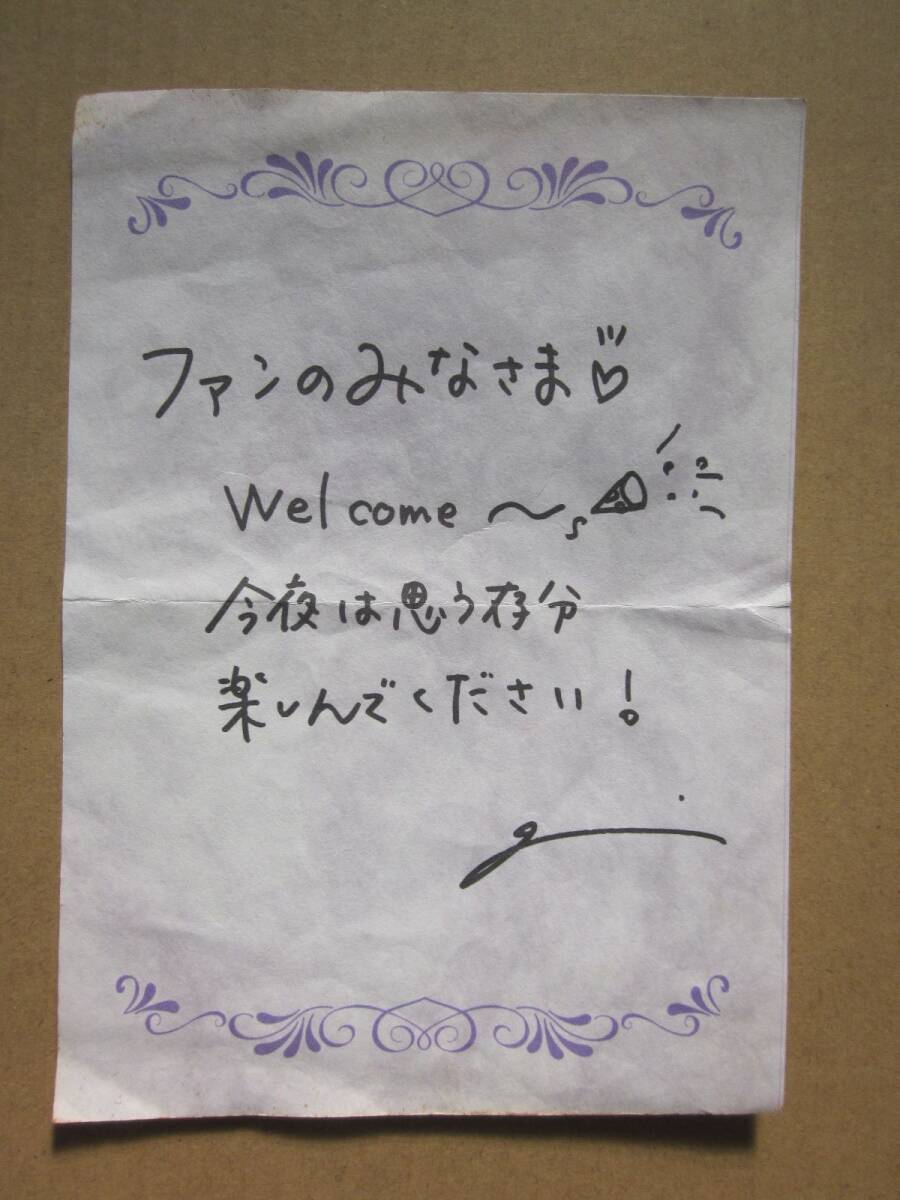 ファンのみなさま♡
Welcome〜
今夜は思う存分
楽しんでください!